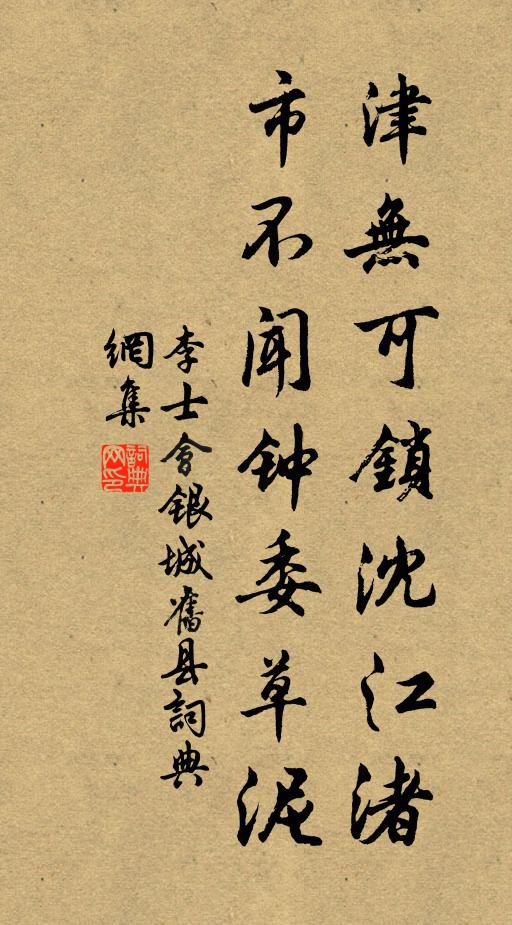 津無可鎖沈江渚
市不闻钟委草泥
李士會银城舊县詞典
網集
詞典
网印